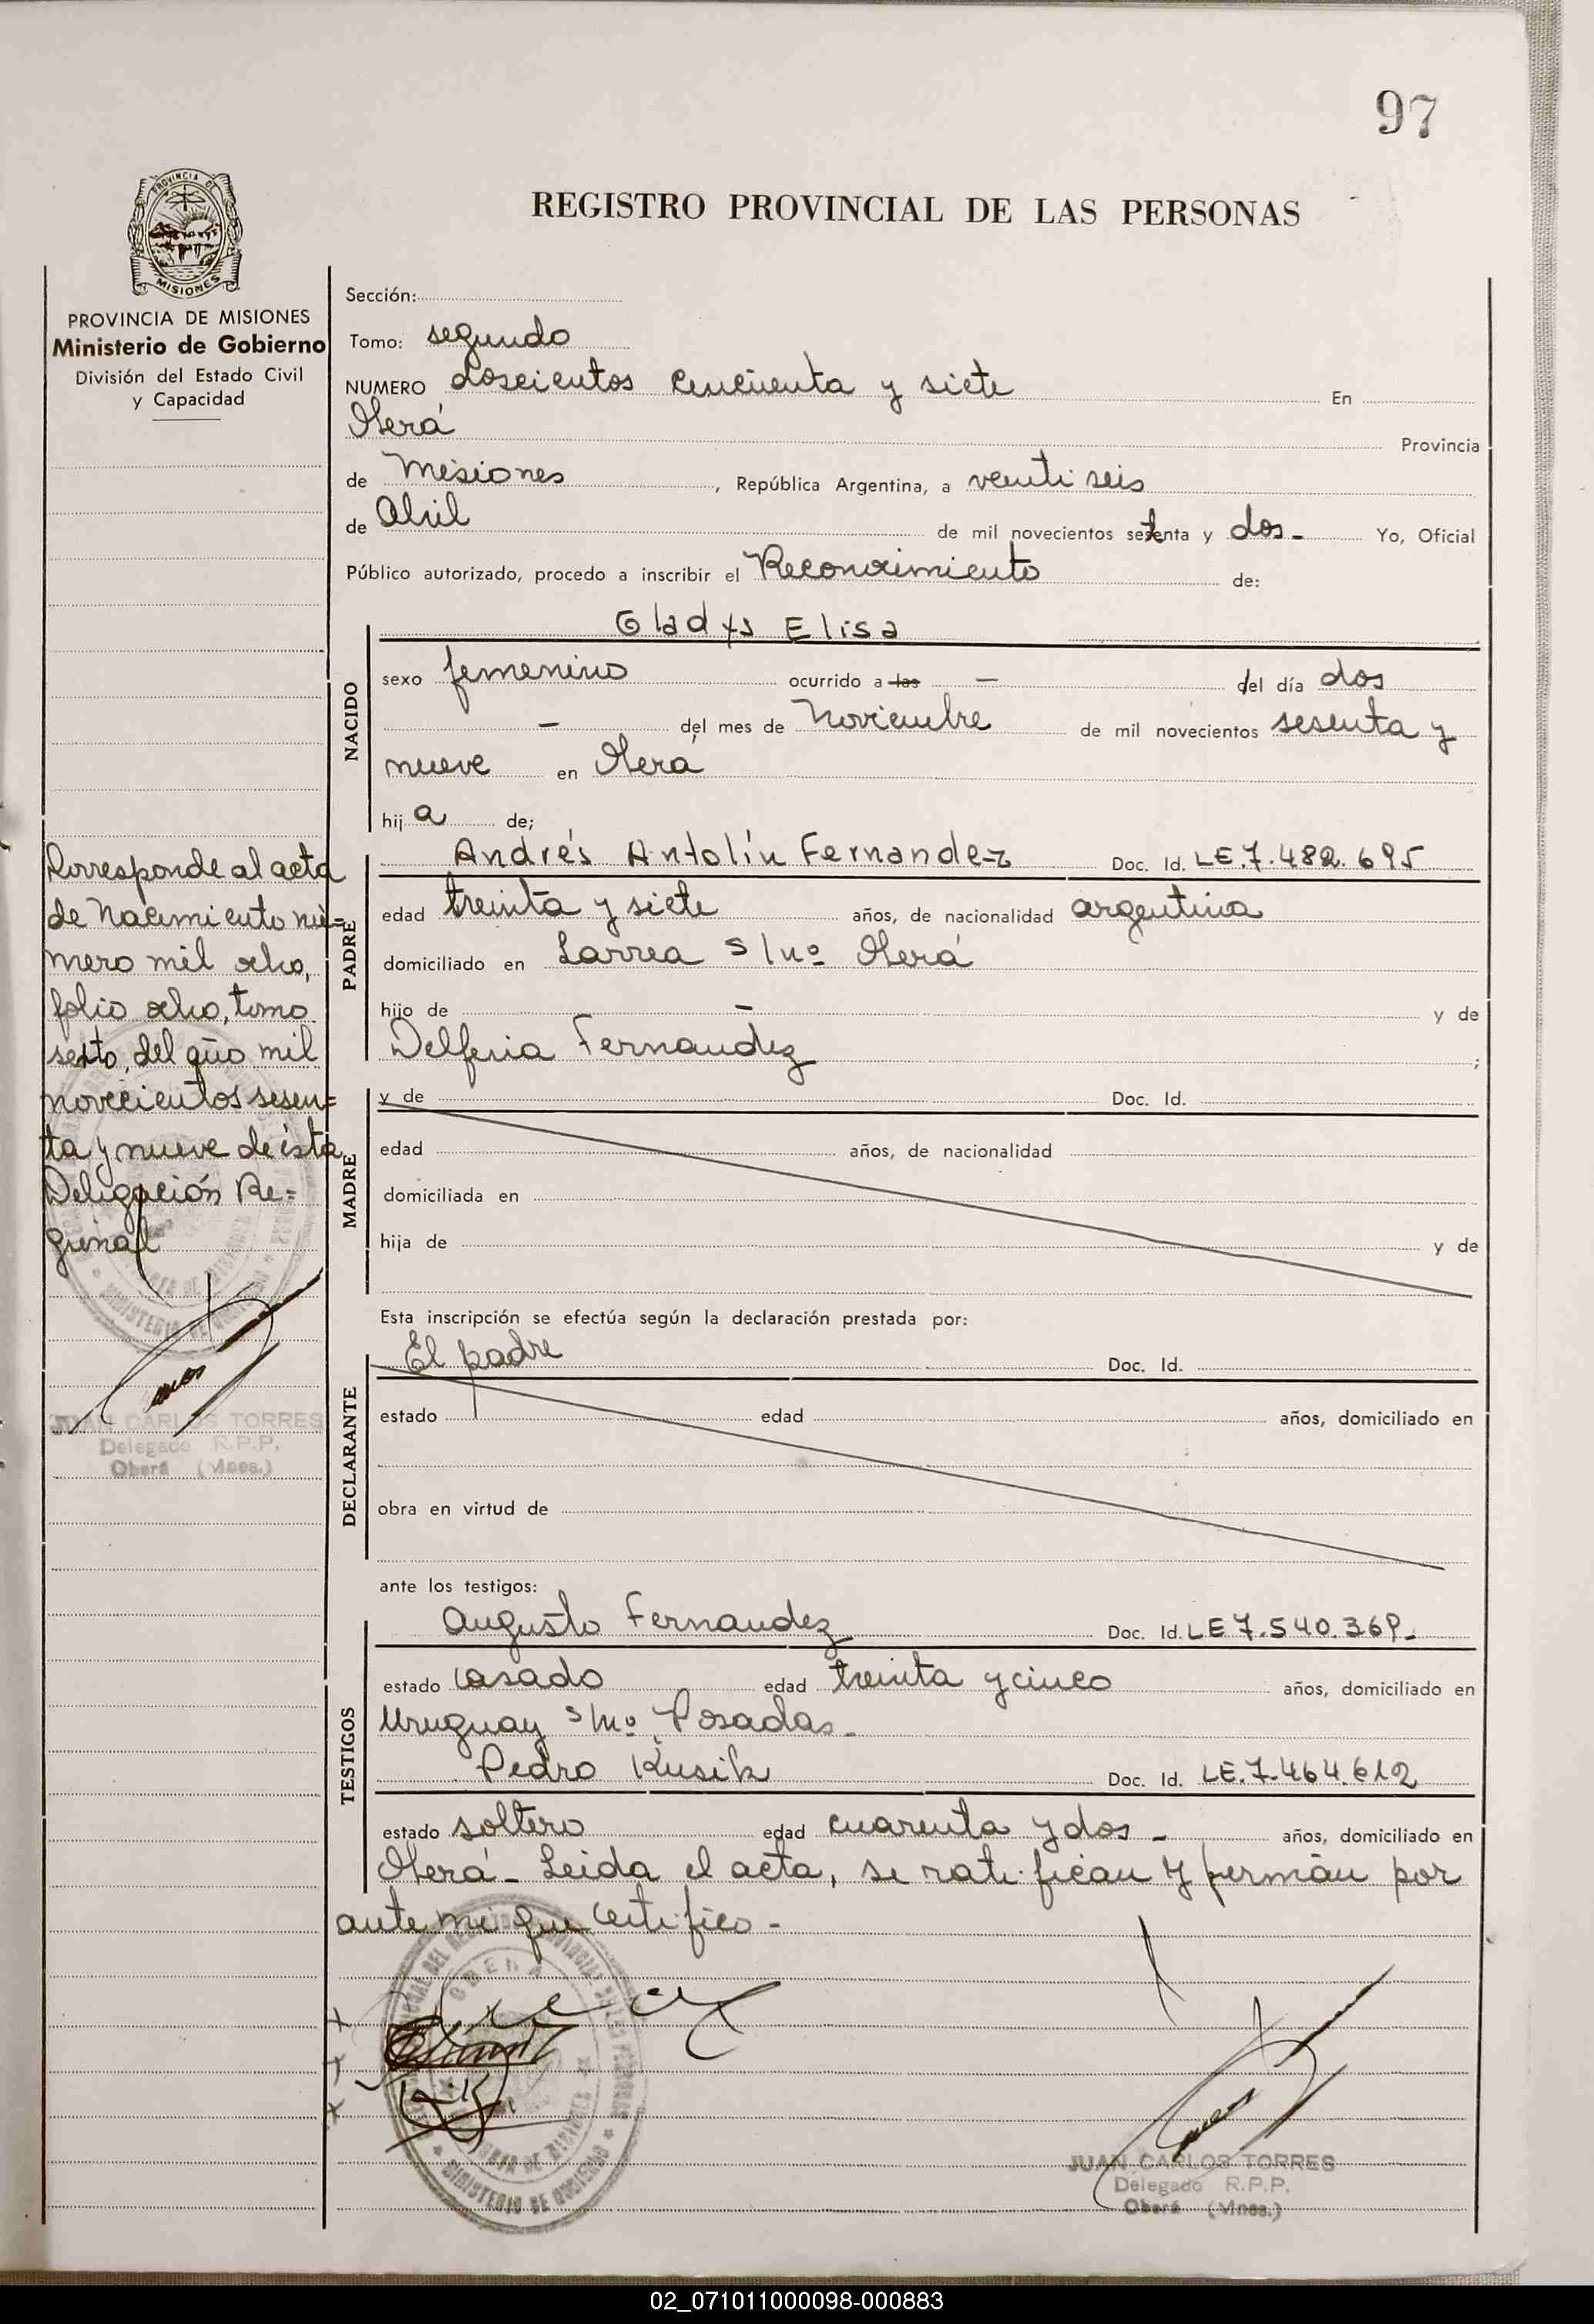 97
REGISTRO PROVINCIAL DE LAS PERSONAS
PROVINCIA DE
MISIONES
PROVINCIA DE MISIONES
Ministerio de Gobierno
División del Estado Civil
y Capacidad
Sección:
Tomo: segundo
NUMERO doscientos cincuenta y siete En
Oberá Provincia
de Misiones, República Argentina, a veinti seis
de Abril de mil novecientos setenta y dos.- Yo, Oficial
Público autorizado, procedo a inscribir el Reconocimiento de:
NACIDO
Gladys Elisa
sexo femenino ocurrido a las — del día dos
— del mes de Noviembre de mil novecientos sesenta y
nueve en Oberá
hija de;
PADRE
Andrés Antolín Fernandez Doc. Id. LE.7.482.695
edad treinta y siete años, de nacionalidad argentina
domiciliado en Larrea s/nº Oberá
hijo de — y de
Delfina Fernandez ;
MADRE
y de Doc. Id.
edad años, de nacionalidad
domiciliada en
hija de y de
Esta inscripción se efectúa según la declaración prestada por:
DECLARANTE
El padre Doc. Id.
estado edad años, domiciliado en
obra en virtud de
ante los testigos:
TESTIGOS
Augusto Fernandez Doc. Id. LE 7.540.369.-
estado casado edad treinta y cinco años, domiciliado en
Uruguay s/nº Posadas.-
Pedro Kusik Doc. Id. LE.7.464.612
estado soltero edad cuarenta y dos - años, domiciliado en
Oberá- Leida el acta, se ratifican y firman por
ante mi que certifico.-
Corresponde al acta
de Nacimiento nú=
mero mil ocho,
folio ocho, tomo
sexto, del año mil
novecientos sesen=
ta y nueve de ésta
Delegación Re=
gional
JUAN CARLOS TORRES
Delegado R.P.P.
Oberá (Mnes.)
OBERA
MINISTERIO DE GOBIERNO
JUAN CARLOS TORRES
Delegado R.P.P.
Oberá (Mnes.)
02_071011000098-000883